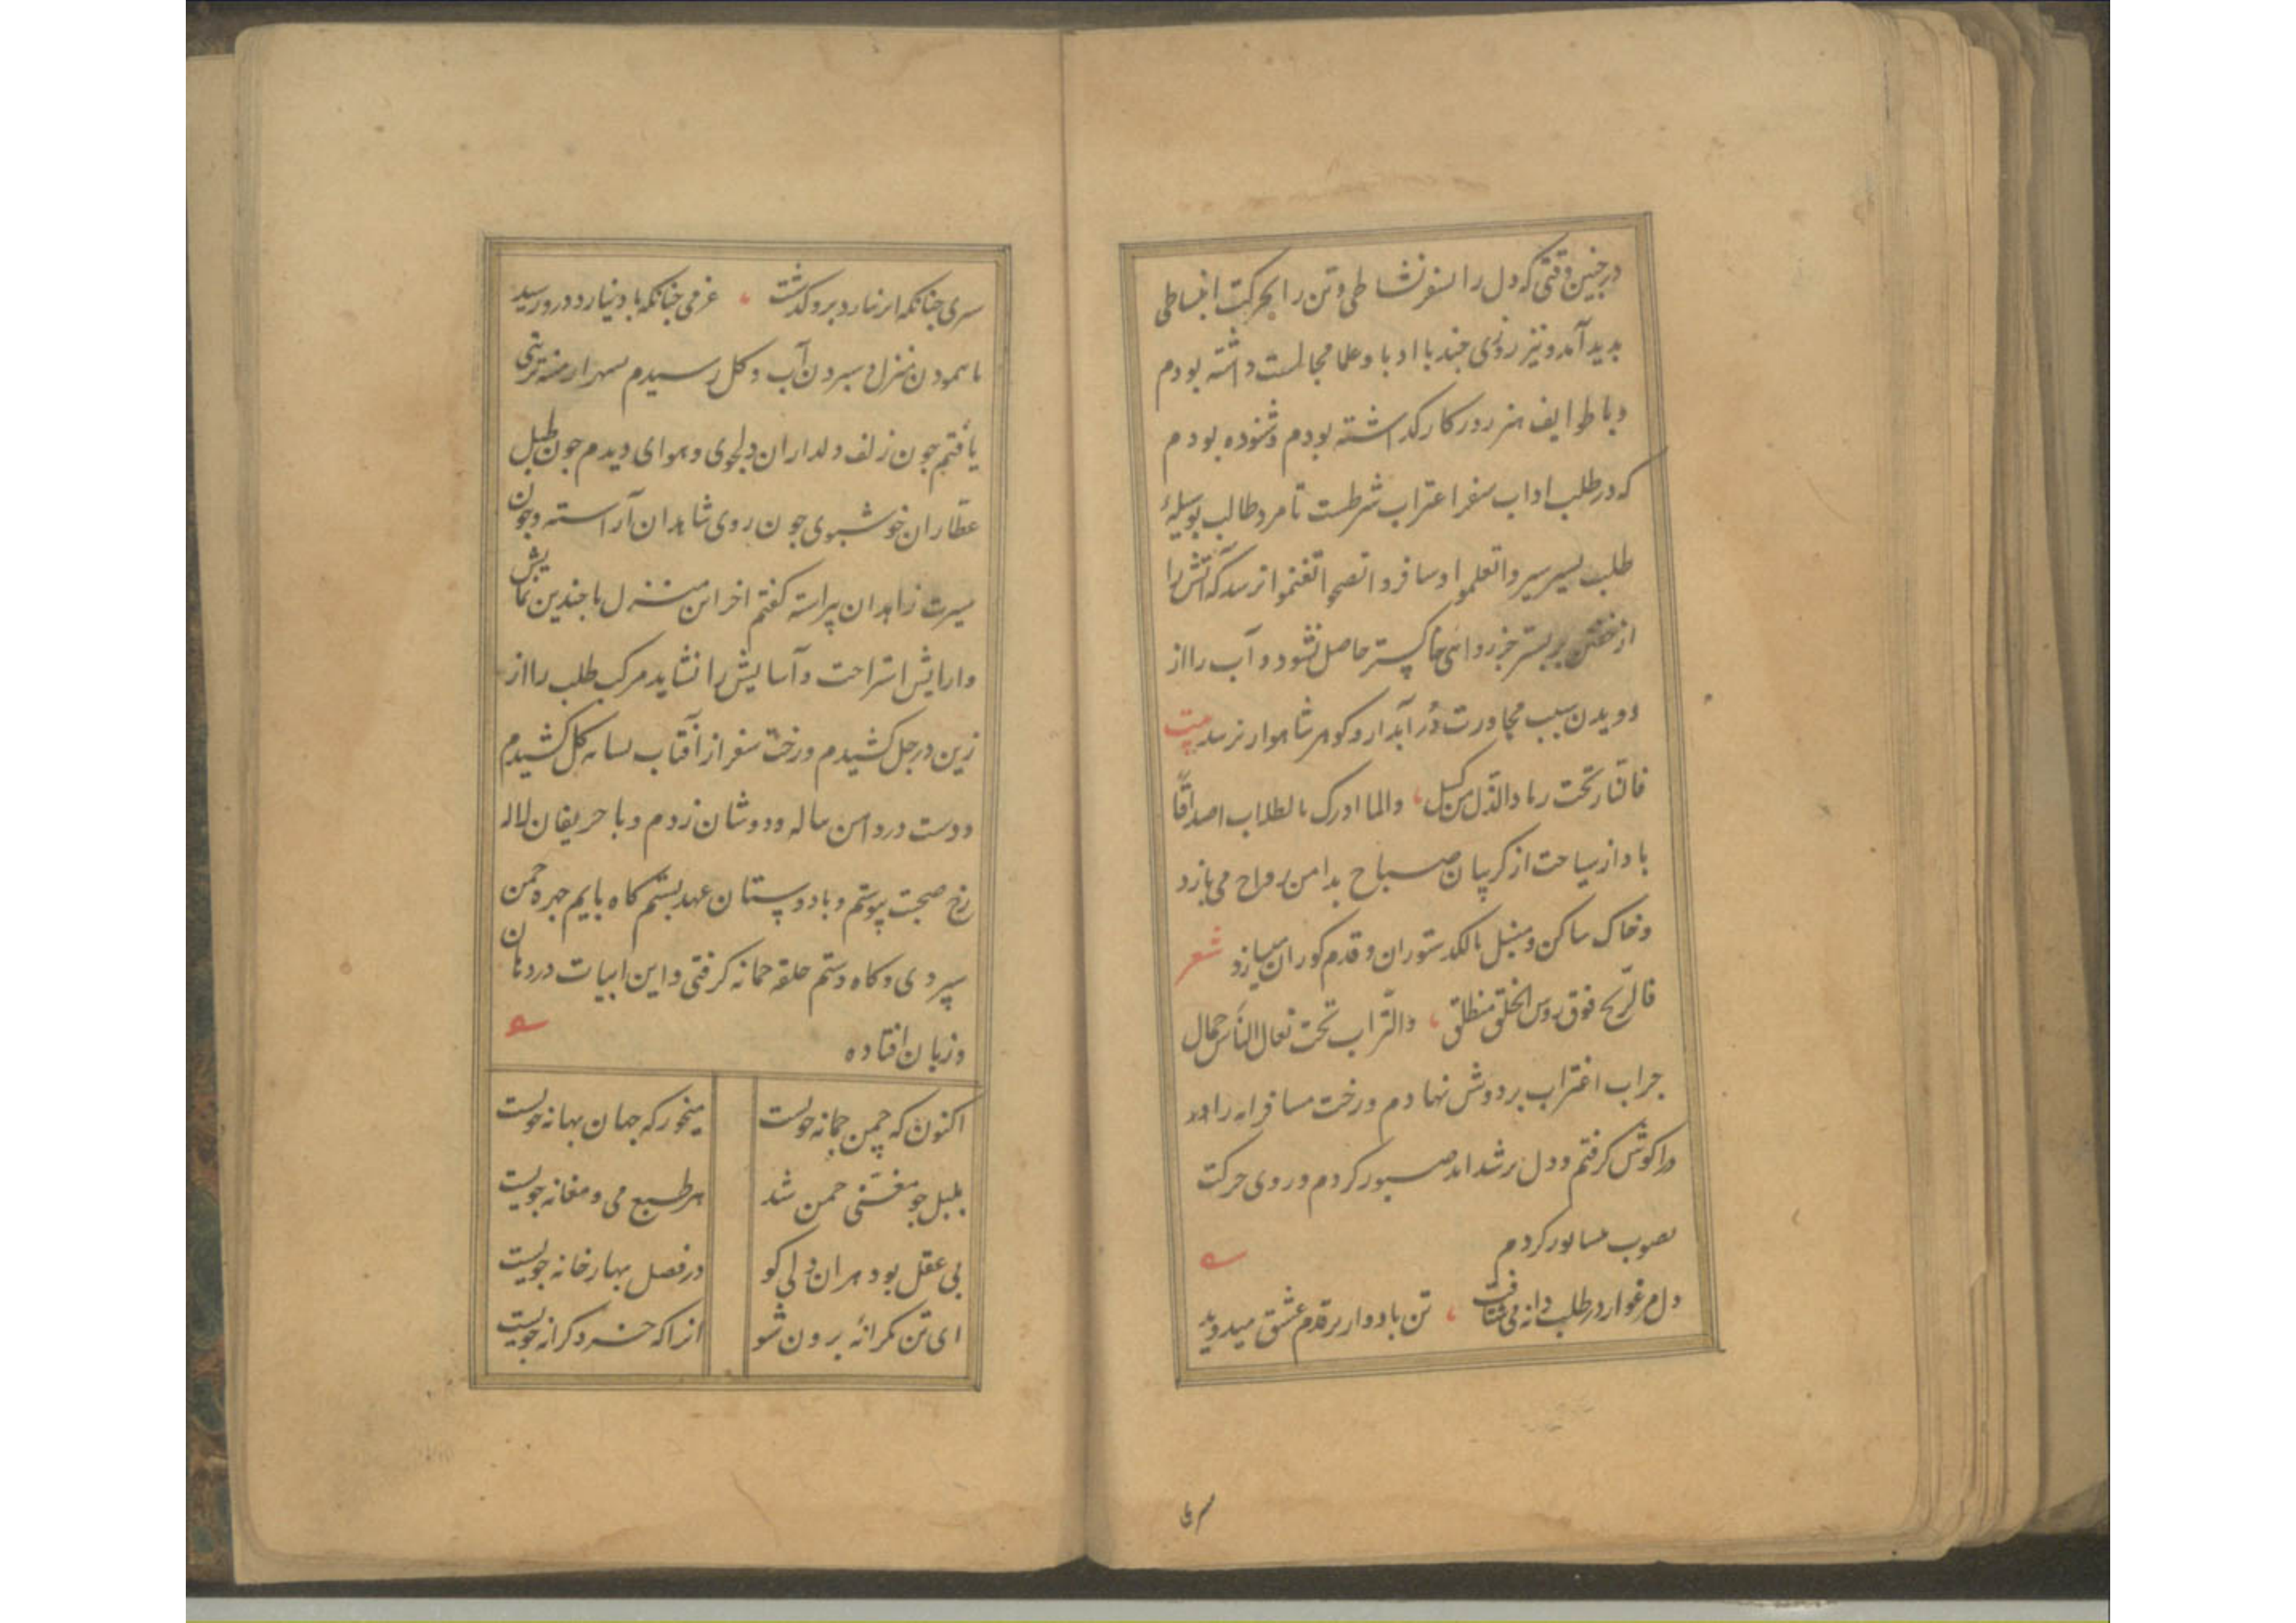 در چنین وقتی که دل را بسفر نشاطی و تن را بحرکت انبساطی
پدید آمد و نیز روزی چند با ادبا و علما مجالست داشته بودم
و با طوایف هنر روزکار کذاشته بودم و شنوده بودم
که در طلب اداب سفر اغتراب شرطست تا مرد طالب بوسیلهٔ
طلب بسیر سیروا تعلموا و سافروا تصحوا تغنموا نرسد که آتش را
از خفتن بر بستر جز ردای خاکستر حاصل نشود و آب را از
دویدن سبب مجاورت دُر آبدار و کوهر شاهوار نرسد بیت
فالنار تحت رماد الذل من کسل ، والما ادرک بالطلاب اصدافًا
باد از سیاحت از کریبان صباح بدامن رواح می یازد
و خاک ساکن و منبل بالکد ستوران و قدم کوران میسازد شعر
فالریح فوق روس الخلق منطلق ، والتراب تحت نعال الناس حمال
جراب اغتراب بر دوش نهادم و رخت مسافرانه را
در اکوش کرفتم و دل بر شداید صبور کردم و روی حرکت
بصوب کردم
دل مرغ وار در طلب دانه می شتافت ، تن باد وار بر قدم عشق میدوید
سری
سری چنانکه ابر نیارد برو کذشت ، عزمی چنانکه باد نیارد درو رسید
با نمودن منزل و سپردن آب و کل رسیدم بشهر تربتی
یافتم چون زلف دلداران دلجوی و هوای دیدم چون طبل
عطاران خوشبوی چون روی شاهدان آراسته و چون
سیرت زاهدان پیراسته کفتم اخر این منزل با چندین نمایش
و ارایش استراحت و آسایش را نشاید مرکب طلب را از
زین در جل کشیدم و رخت سفر از آفتاب بسایه کل کشیدم
و دست در دامن لاله و دوشان زدم و با حریفان لاله
رخ صحبت پیوستم و با دوستان عهد بستم کاه پایم چهره چمن
سپردی و کاه دستم حلقه چمانه کرفتی و این ابیات در دهان
و زبان افتاده
اکنون که چمن چمانه جویست میخور که جهان بهانه جویست
بلبل چو مغنی چمن شد هر طبع می و مغانه جویست
بی عقل بود هر ان دلی کو در فصل بهار خانه جویست
ای تن کرانهٔ برون شو انرا که خرد کرانه جویست